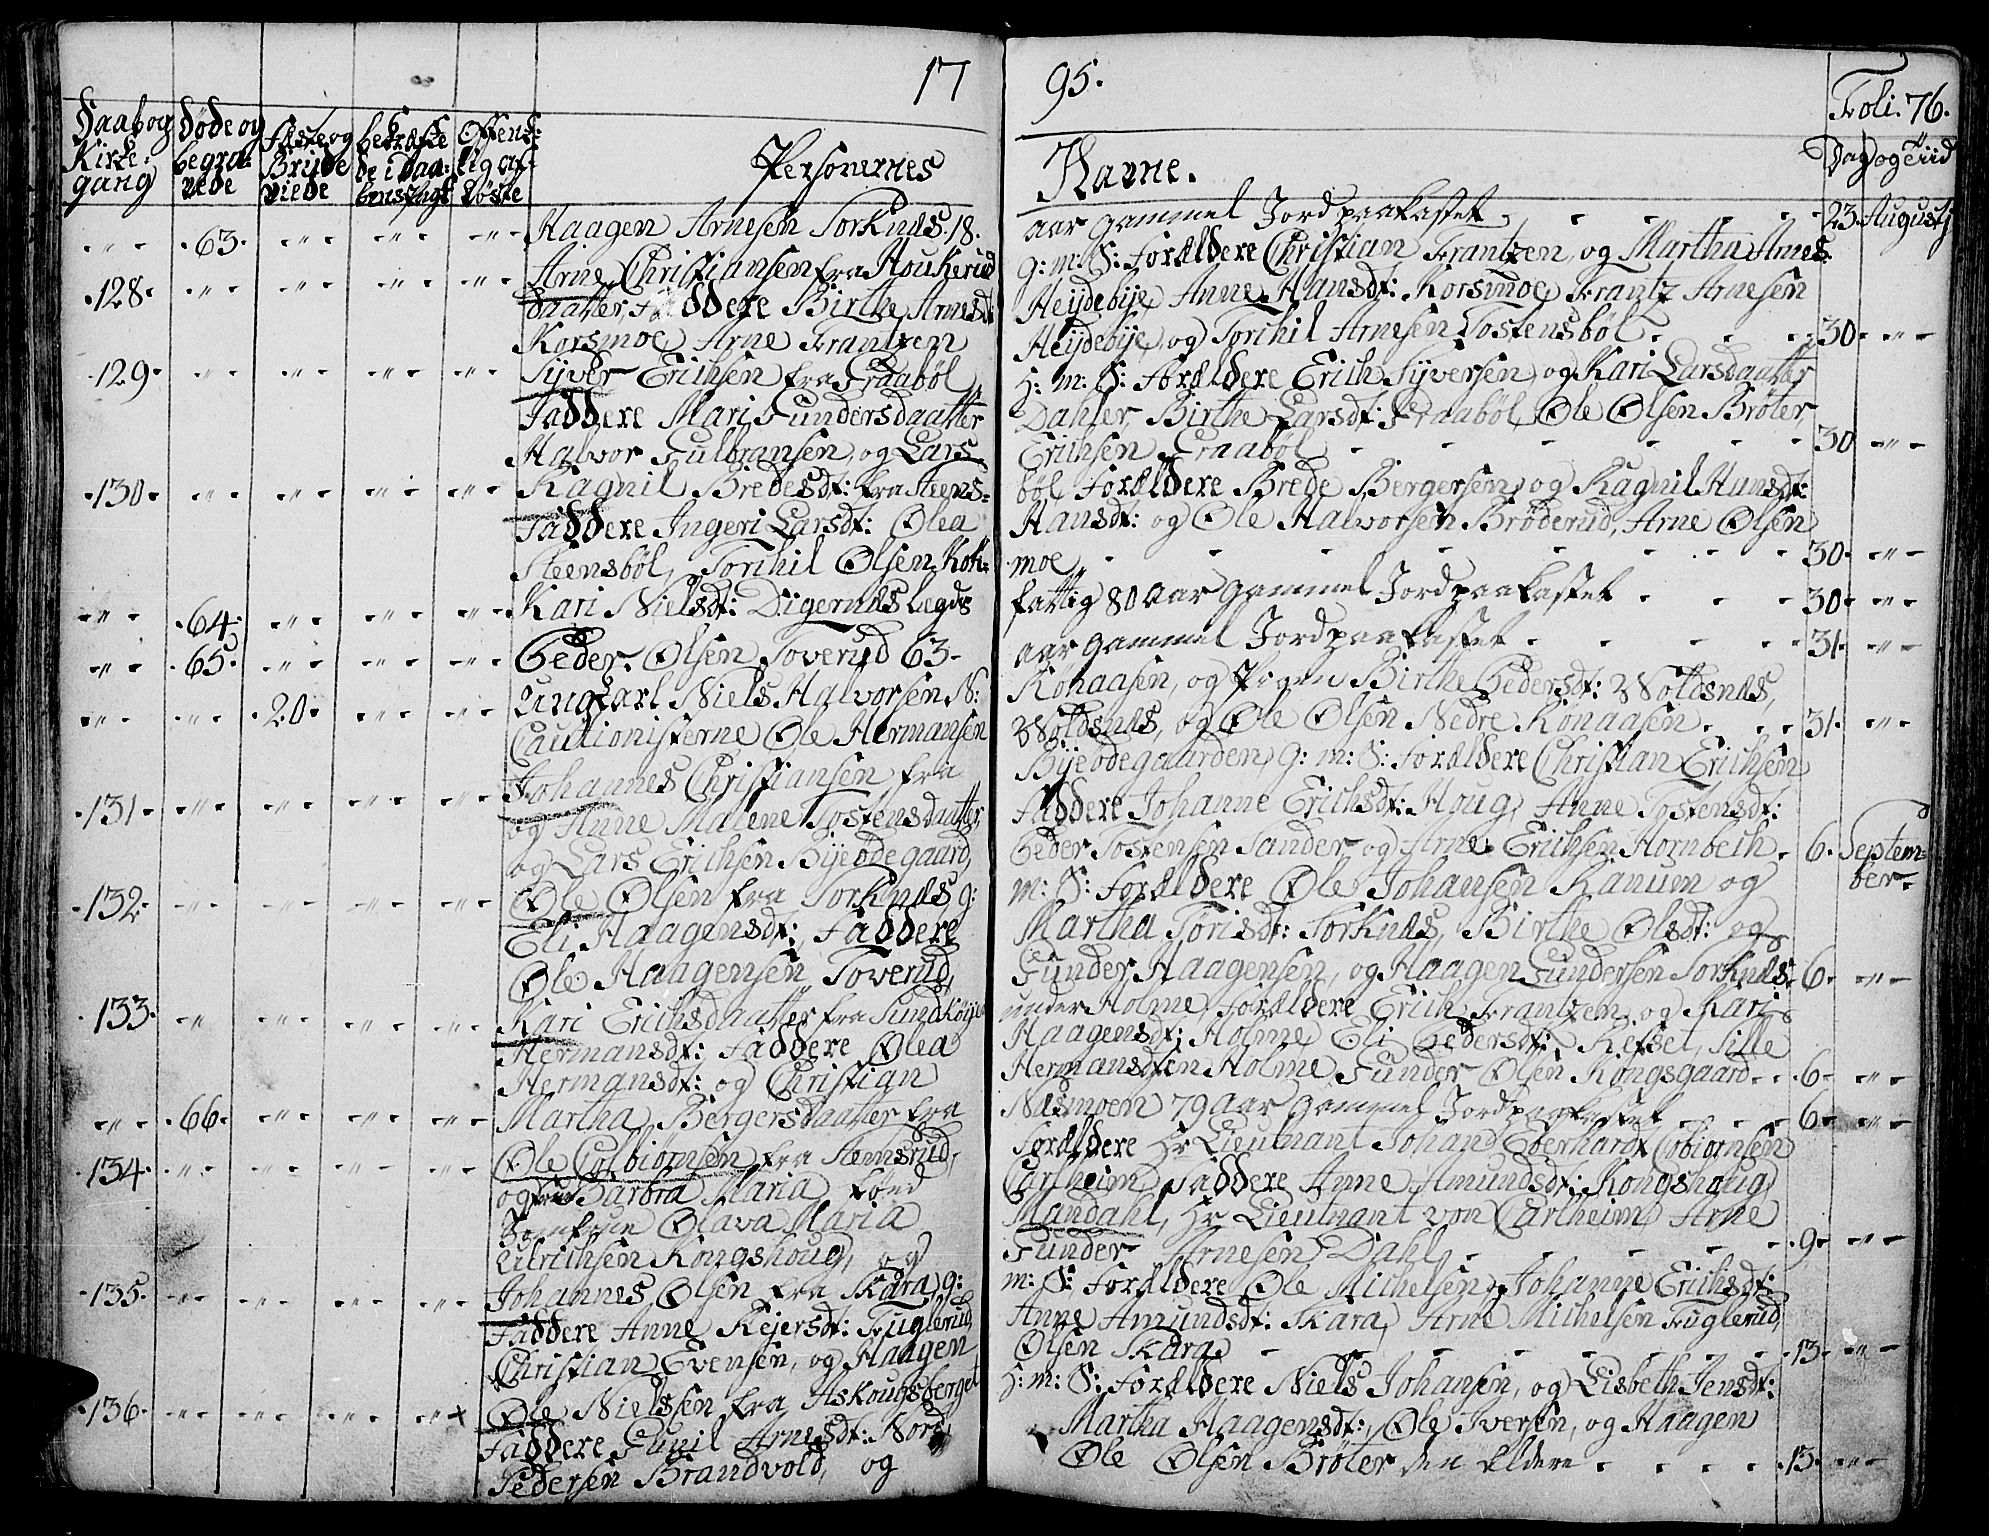 17
95.
Foli. 76.
Daab og Kirke: gang
Døde og begra: vede
Fæste og Brude viede
bekræfte de i Daa: bens pagt
Offent: lig af: løste
Personernes
Navne.
Dag og Tiid
63. Haagen Arnesen Torknæs. 18.
aar gammel Jord paakastet 23. Augustj
128. Arne Christiansen fra Houkerud
g: m: S: Forældere Christian Frantzen, og Martha Arnes
daatter, Faddere Birthe Arnesdt:
Heijdebije, Anne Hansdt: Korsmoe, Frantz Arnesen
Korsmoe, Arne Frantzen
Heijdebije, og Torchil Arnesen Tostensbøl 30
129. Syver Erichsen fra Graabøl
H: m: S: Forældere Erich Syversen, og Kari Larsdaatter
Faddere Mari Gundersdaatter
Dahler, Birthe Larsdt: Graabøl, Ole Olsen Brøter,
Halvor Gulbransen, og Lars
Erichsen Graabøl 30
130. Ragnil Bredesdt: fra Steens=
bøl Forældere Brede Bergersen, og Ragnil Hansdt:
Faddere Ingeri Larsdt: Olea
Hansdt: og Ole Halvorsen Brøderud, Arne Olsen
Steensbøl, Torchil Olsen Kok=
moe 30
64. Kari Nielsdt: Digernæs lægds
fattig 80 aar gammel Jord paakastet 30
65. Peder Olsen Toverud 63
aar gammel Jord paakastet 31
20. Ungkarl Niels Halvorsen N:
Kønaasen, og Pigen Birthe Pedersdt: Woldsnæs,
Cautionisterne Ole Hermansen
Woldsnæs, og Ole Olsen Nedre Kønaasen 31
131. Johannes Christiansen fra
Bijeødegaarden, g: m: S: Forældere Christian Erichsen
og Anne Malene Tostensdaatter
Faddere Johanne Erichsdt: Houg, Anne Tostensdt:
og Lars Erichsen Bijeødegaard,
Peder Tostensen Sander og Arne Erichsen Hornbeth 6. Septem=
ber
132. Ole Olsen fra Torknæs g:
m: S: Forældere Ole Johansen Ranum og
Eli Haagensdt: Faddere
Martha Torisdt: Torknæs, Birthe Olsdt: og
Ole Haagensen Toverud,
Gunder Haagensen, og Haagen Gundersen Torknæs 6
133. Kari Erichsdaatter fra Sundkøijen
under Holme, Forældere Erich Frantzen, og Kari
Hermansdt: Faddere Olea
Haagensdt: Holme, Eli Pedersdt: Refset, Sille
Hermansdt: og Christian
Hermansdten Holme Gunder Olsen Kongsgaard 6
66. Martha Bergersdaatter fra
Næsmoen 79 Aar gammel Jord paakastet 6
134. Ole Colbiørnsen fra Stemsrud,
Forældere Hr Lieutnant Johan Eberhardt Cobiørnsen
og Barbra Maria født
Carlheim, Faddere Anne Amundsdt: Kongshoug,
Jomfrue Olava Maria
Mandahl, Hr Lieutnant von Carlheim, Arne
Ulrichsen Kongshoug, og
Gunder Arnesen Dahl 9
135. Johannes Olsen fra Skara, g:
m: S: Forældere Ole Michelsen, Johanne Erichsdt:
Faddere Anne Rejersdt: Fuglerud,
Anne Amundsdt: Skara, Arne Michelsen Fuglerud,
Christian Evensen, og Haagen
Olsen Skara 13
136. Ole Nielssen fra Askougsberget
H: m: S: Forældere Niels Johansen, og Lisbeth Jensdt:
Faddere Gunil Arnesdt: Nord
Martha Haagensdt: Ole Iversen, og Haagen
Pedersen Brandvold, og
Ole Olsen Brøter den eldere 13